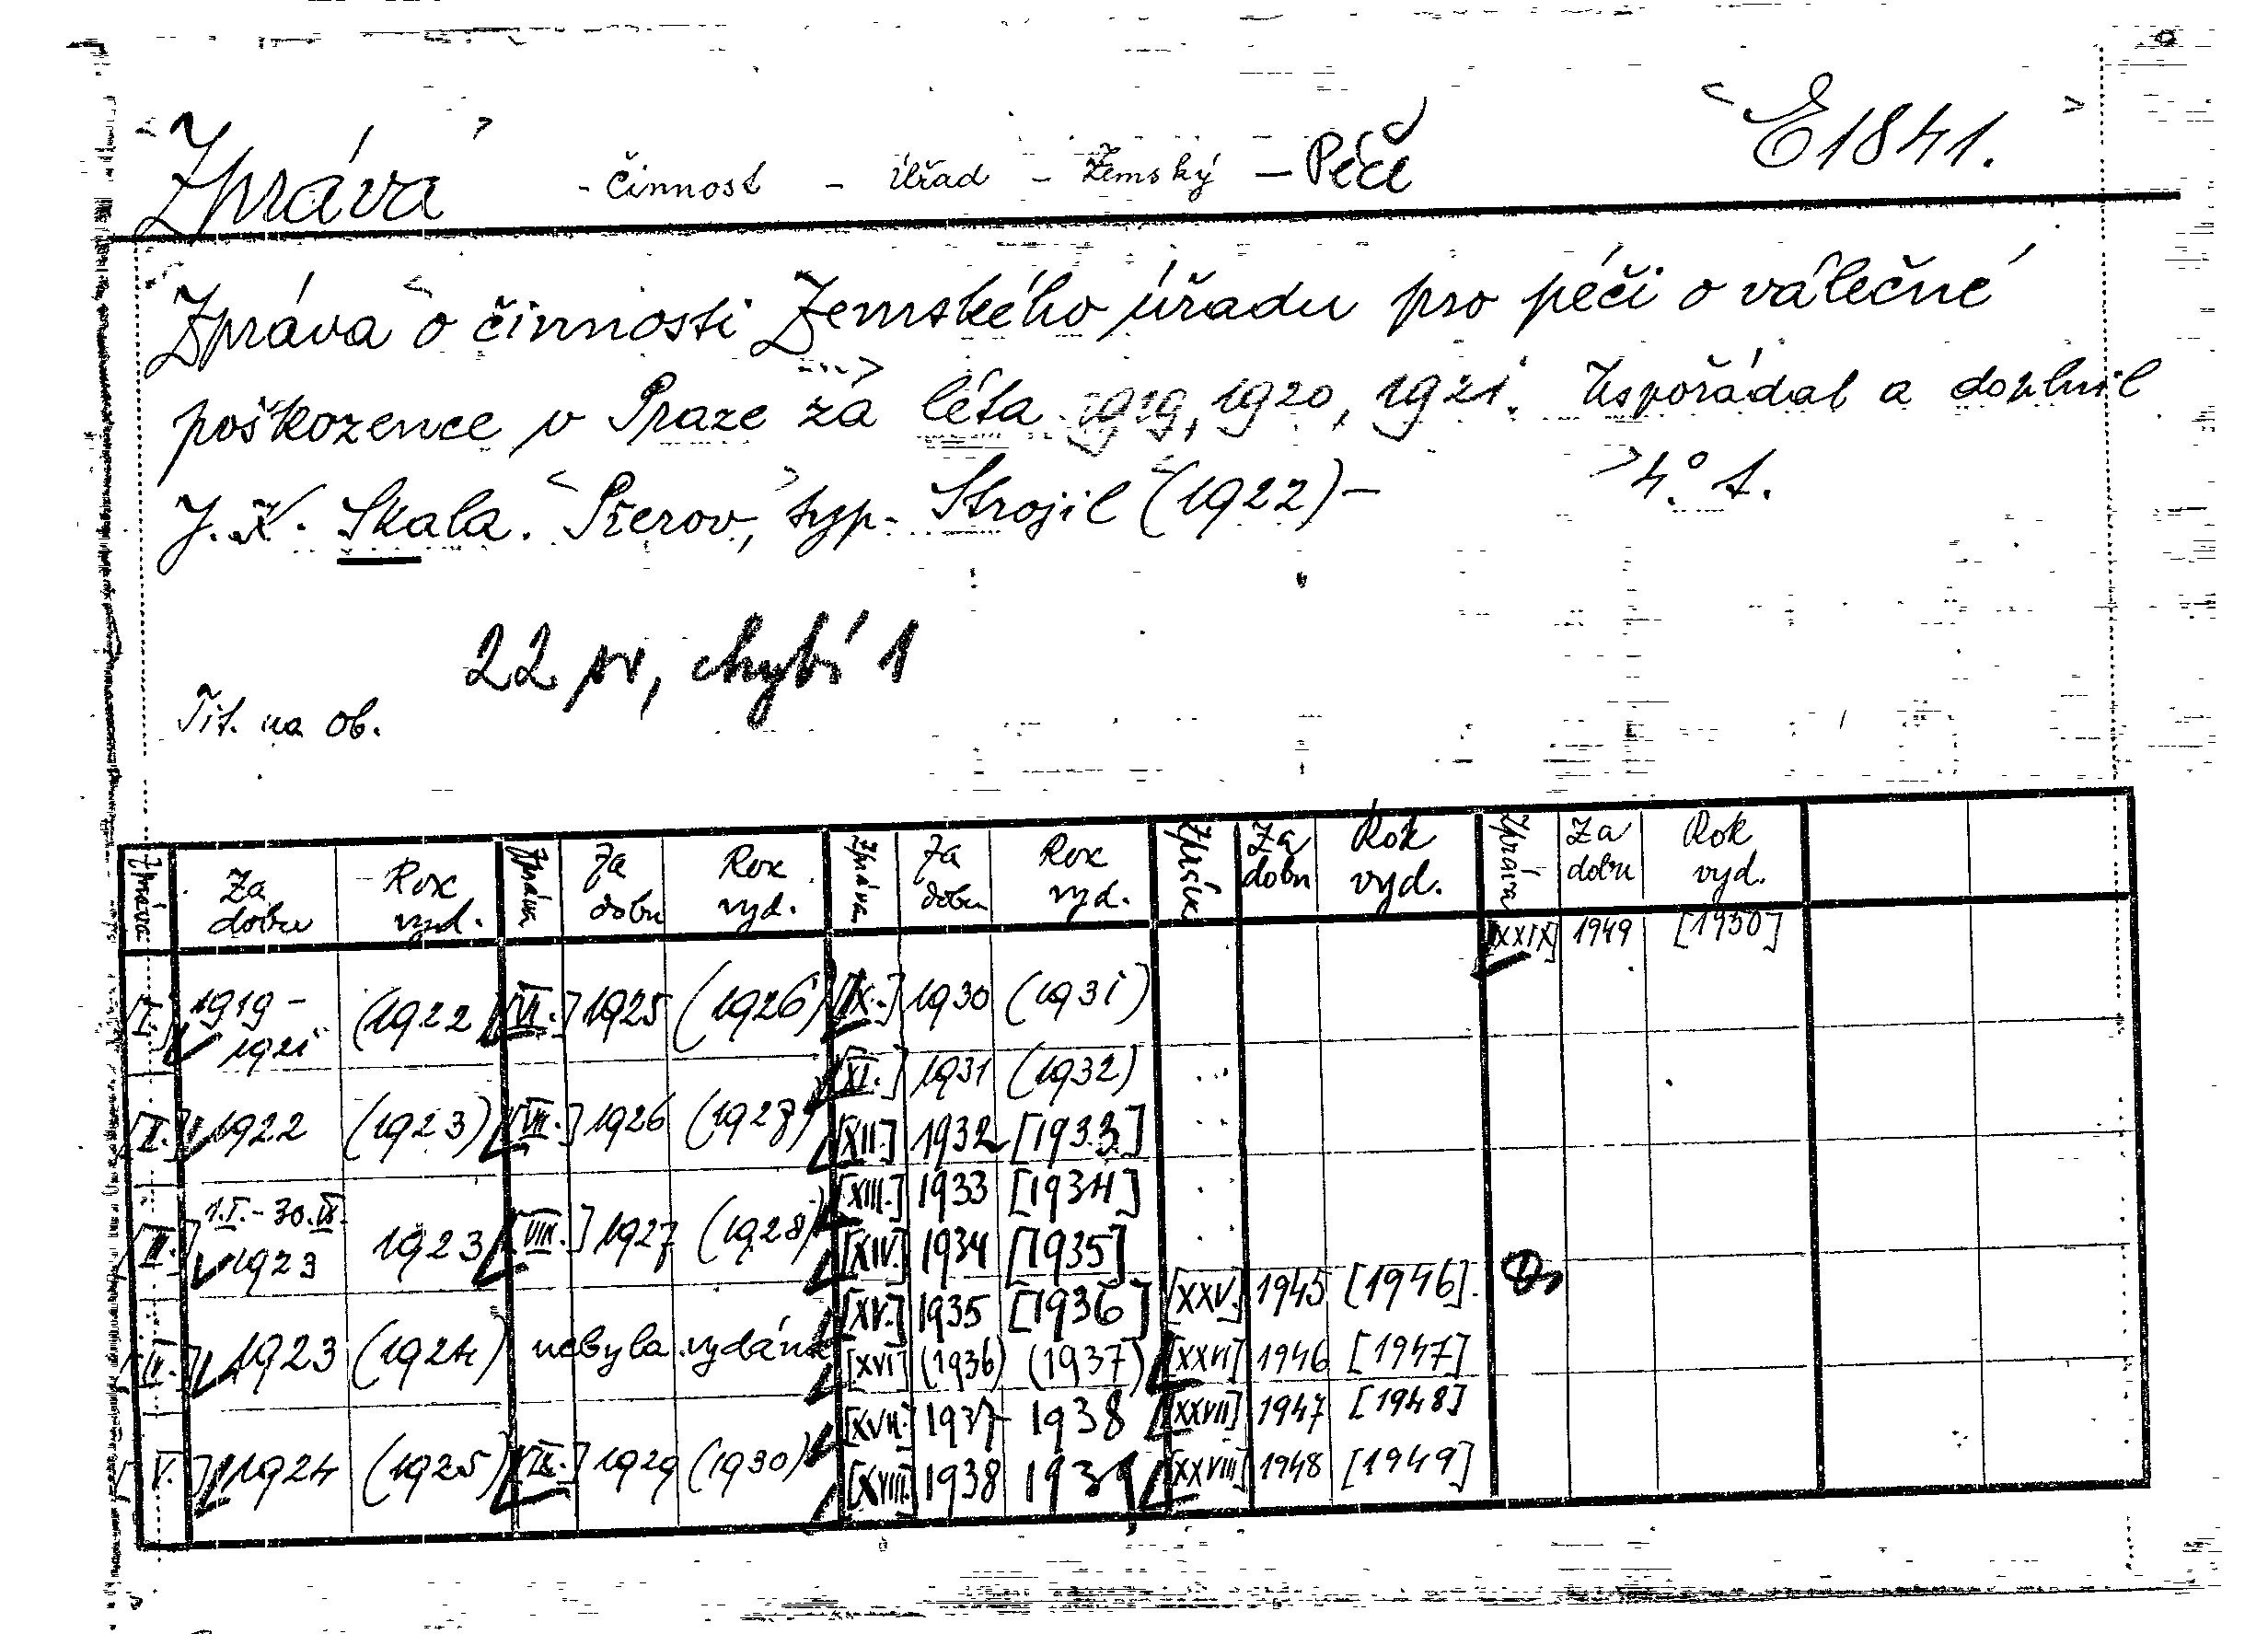 Zpráva - činnost - úřad - Zemský - Péče E 1841.
Zpráva o činnosti Zemského úřadu pro péči o válečné
poškozence v Praze za léta 1919, 1920, 1921. Uspořádal a doplnil
J. K. Skala. Přerov, typ. Strojil (1922) - 4.° t.
22 sv, chybí 1
Tit. na ob.
Zpráva Za dobu Rok vyd. Zpráva Za dobu Rok vyd. Zpráva Za dobu Rok vyd. Zpráva Za dobu Rok vyd. Zpráva Za dobu Rok vyd.
[XXIX] 1949 [1950]
[I.] 1919 - 1921 (1922) [VI.] 1925 (1926) [X.] 1930 (1931)
[XI.] 1931 (1932)
[II.] 1922 (1923) [VII.] 1926 (1927) [XII.] 1932 [1933]
[XIII.] 1933 [1934]
[III.] 1.I. - 30.IX. 1923 1923 [VIII.] 1927 (1928) [XIV.] 1934 [1935]
[XV.] 1935 [1936] [XXV.] 1945 [1946].
[IV.] 1923 (1924) nebyla vydána [XVI] (1936) (1937) [XXVI] 1946 [1947]
[XVII.] 1937 1938 [XXVII] 1947 [1948]
[V.] 1924 (1925) [IX.] 1929 (1930) [XVIII.] 1938 1939 [XXVIII] 1948 [1949]